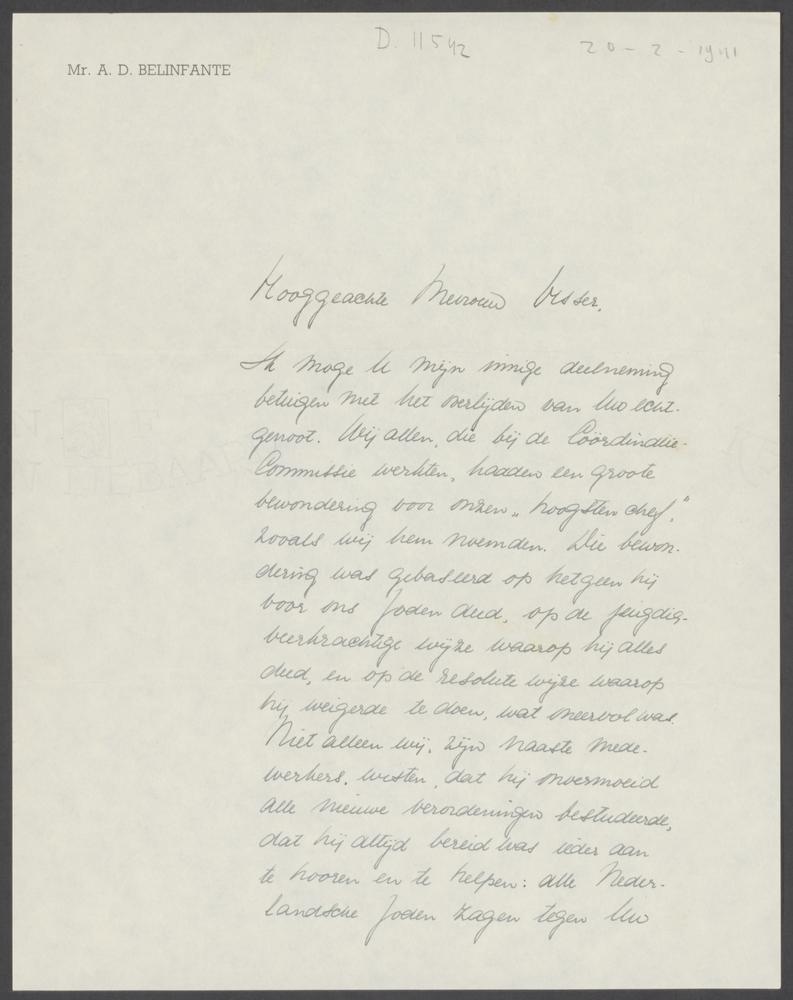 D. 11542
20-2-1941
Mr. A. D. BELINFANTE
Hooggeachte Mevrouw Visser,
Ik moge U mijn innige deelneming
betuigen met het overlijden van Uw echt-
genoot. Wij allen, die bij de Coördinatie-
Commissie werkten, hadden een groote
bewondering voor onzen „hoogsten chef,"
zooals wij hem noemden. Die bewon-
dering was gebaseerd op hetgeen hij
voor ons Joden deed, op de jeugdig-
veerkrachtige wijze waarop hij alles
deed, en op de resolute wijze waarop
hij weigerde te doen, wat oneervol was.
Niet alleen wij, zijn naaste mede-
werkers, wisten, dat hij onvermoeid
alle nieuwe verordeningen bestudeerde,
dat hij altijd bereid was ieder aan
te hooren en te helpen: alle Neder-
landsche Joden zagen tegen Uw